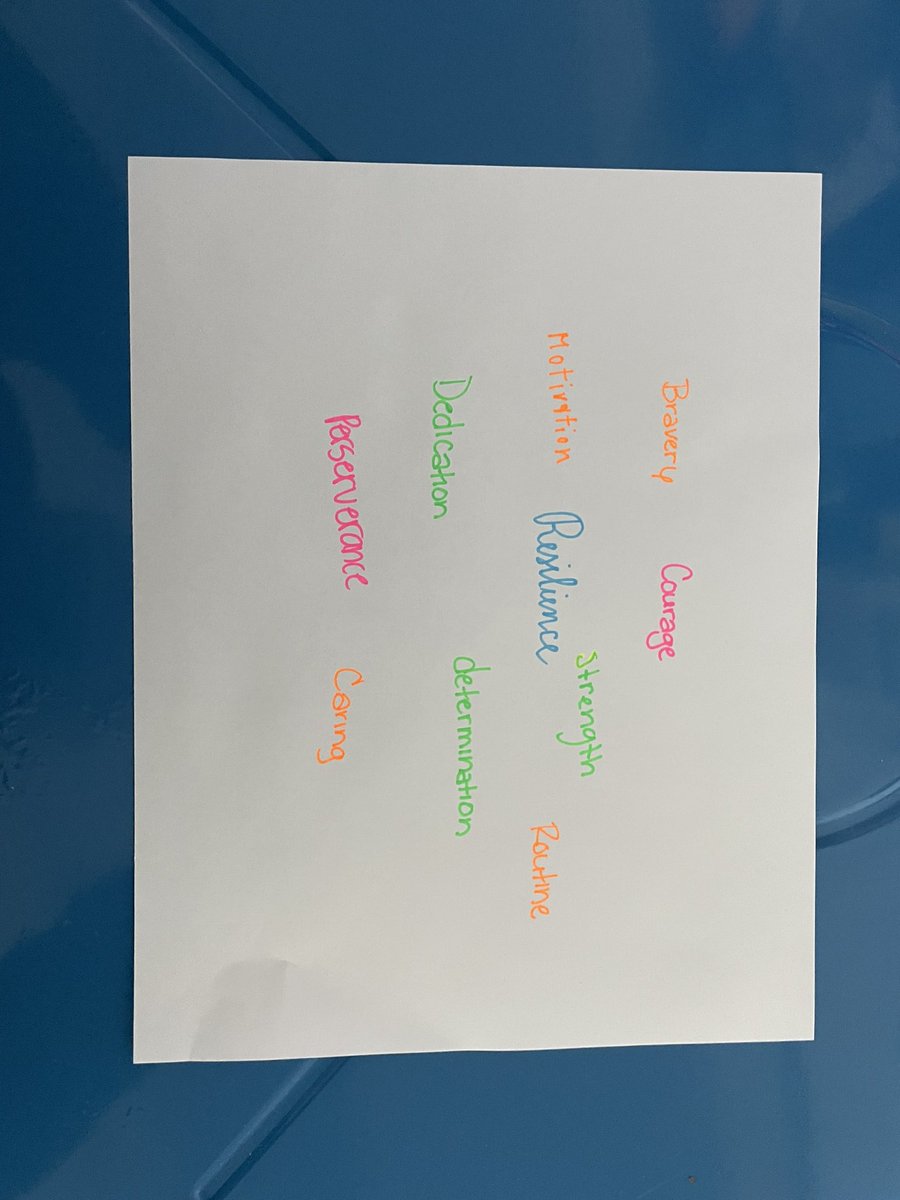 Bravery
Courage
Motivation
Resilience
Strength
Routine
Dedication
determination
Perserverance
Caring